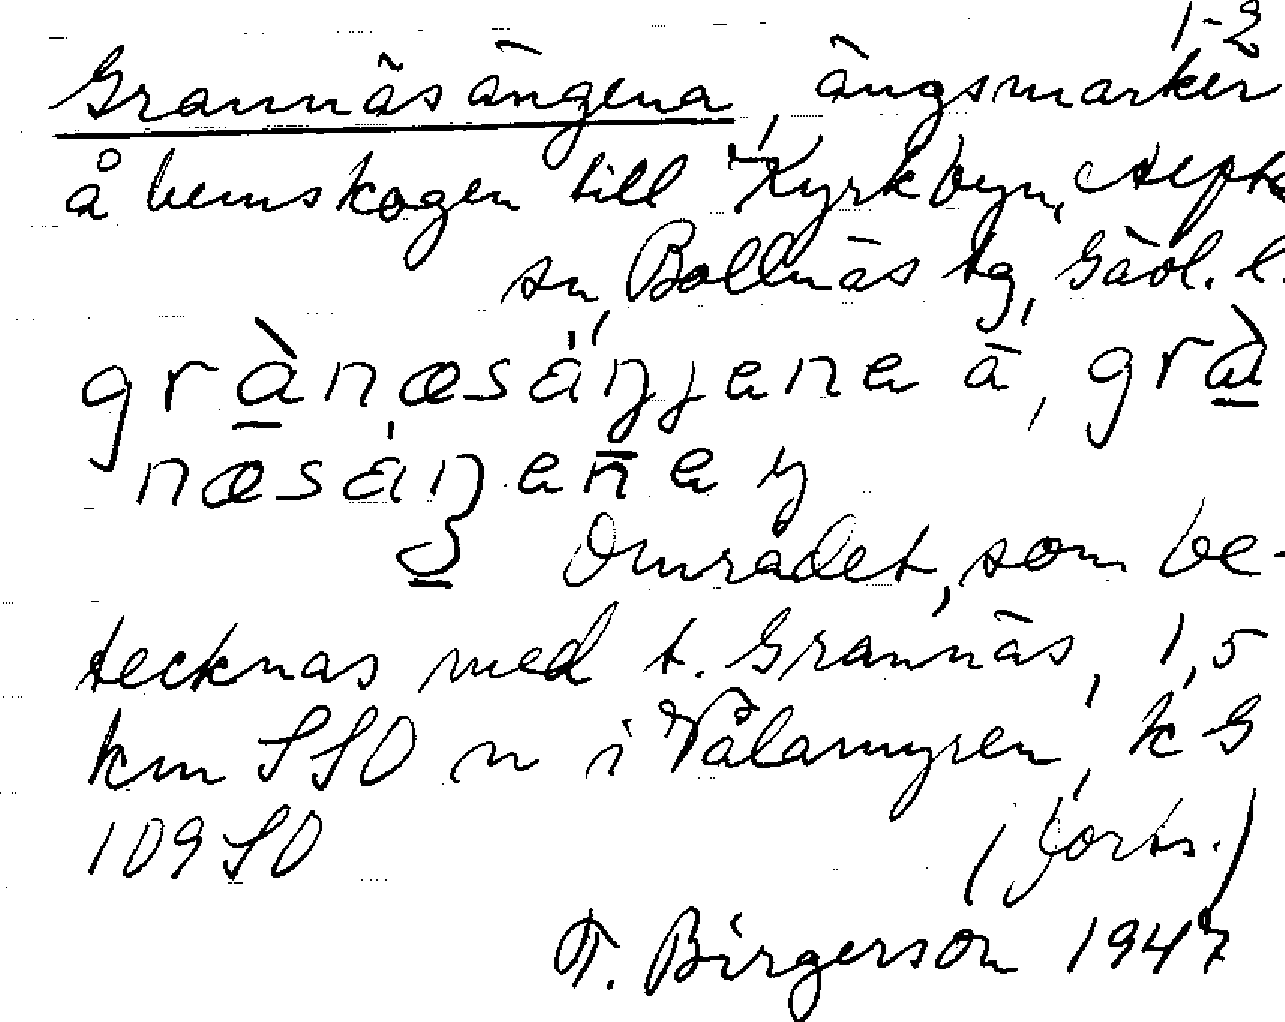 1-2
Grannäsängena, ängsmarker
å hemskogen till Kyrkbyn, Alfta
sn, Bollnäs tg, Gävl. l.
grànæsáŋjena ä, grà
næsáŋena y
Området, som be-
tecknas med t. Grannäs, 1,5
km SSO n i Vålamyren, k G
109 SO
(forts.)
T. Birgerson 1947